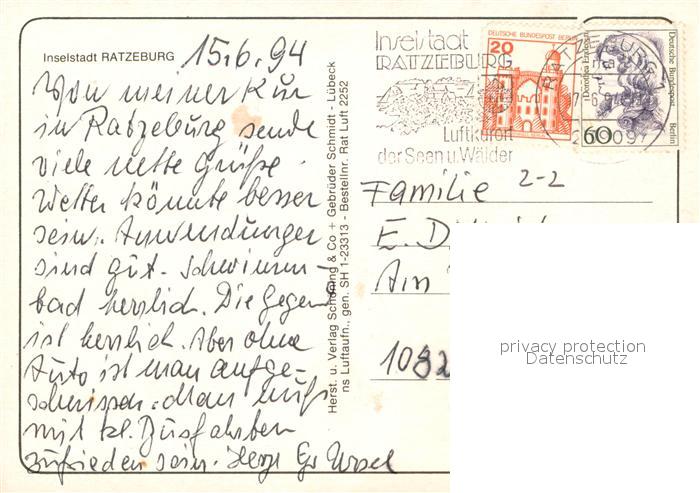 Inselstadt RATZEBURG
15.6.94
Von meiner Kur
in Ratzeburg sende
viele nette Grüße.
Wetter könnte besser
sein. Anwendungen
sind gut. Schwimm-
bad herrlich. Die Gegend
ist herrlich. Aber ohne
Auto ist man aufge-
schmissen. Man muß
mit kl. Busfahrten
zufrieden sein. Herzl Gr Ursel
Herst. u. Verlag Schöning & Co + Gebrüder Schmidt - Lübeck
ns Luftaufn., gen. SH 1-23313 - Bestellnr. Rat Luft 2252
Inselstadt
RATZEBURG
Luftkurort
der Seen u. Wälder
DEUTSCHE BUNDESPOST BERLIN
20
RATZEBURG 1
Deutsche Bundespost
Berlin
60
Familie 2-2
E. D
Am
1082
privacy protection
Datenschutz